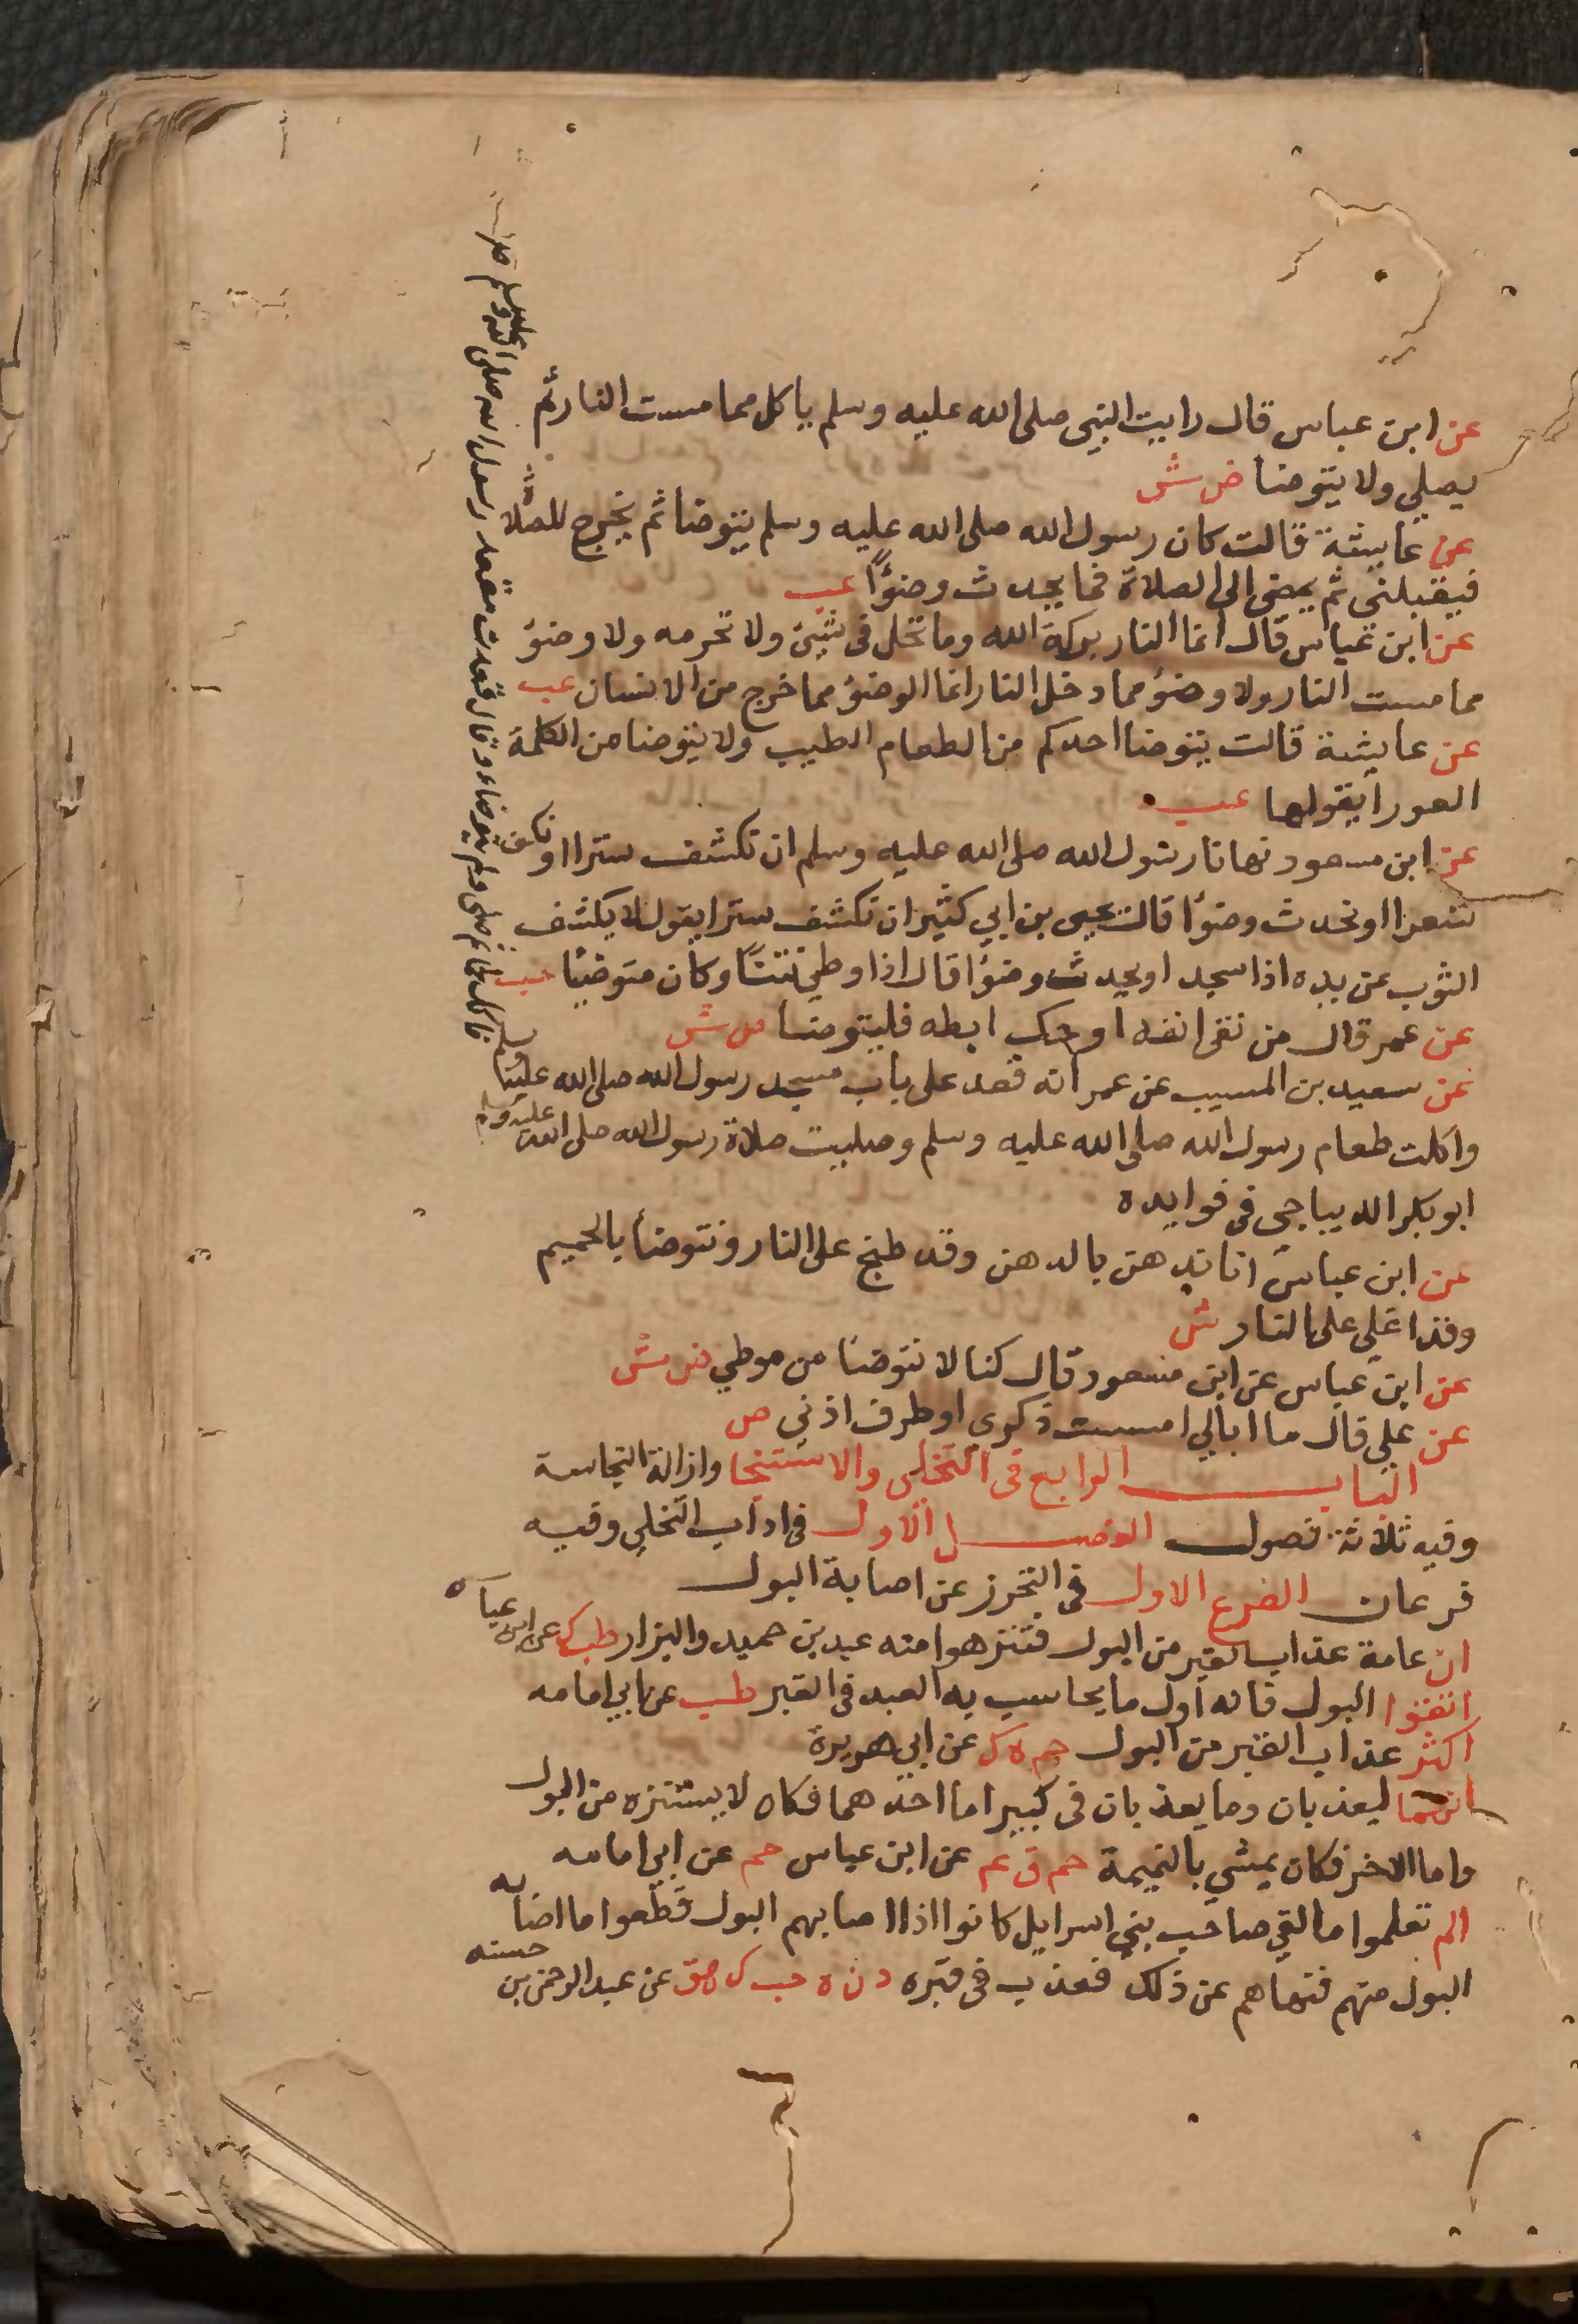 عن ابن عباس قال رايت النبي صلى الله عليه وسلم ياكل مما مست النار ثم
يصلي ولا يتوضا ض ش
عن عايشة قالت كان رسول الله صلى الله عليه وسلم يتوضا ثم يخرج للصلاة
فيقبلني ثم يمضي الى الصلاة فما يحدث وضوًا عب
عن ابن عباس قال انما النار بركة الله وما تحل في شيئ ولا تحرمه ولا وضوء
مما مست النار ولا وضوء مما دخل النار انما الوضوء مما خرج من الانسان عب
عن عايشة قالت يتوضا احدكم من الطعام الطيب ولا يتوضا من الكلمة
العورا يقولها عب
عن ابن مسعود نهانا رسول الله صلى الله عليه وسلم ان نكشف سترا او نكف
شعرا او نحدث وضوًا قال يحيى بن ابي كثير ان نكشف سترا يقول لا يكشف
الثوب عن يده اذا سجد او يحدث وضوًا قال اذا وطي نتنًا وكان متوضيًا عب
عن عمر قال من نقى انفه او حك ابطه فليتوضا ص ش
عن سعيد بن المسيب عن عمر انه قعد على باب مسجد رسول الله صلى الله عليه وسلم
فاكل ثم صلى ولم يتوضاء وقال قعدت مقعد رسول الله صلى الله عليه وسلم
واكلت طعام رسول الله صلى الله عليه وسلم وصليت صلاة رسول الله صلى الله عليه وسلم
ابو بكر الديباجي في فوايده
عن ابن عباس انا ندهن بالدهن وقد طبخ على النار ونتوضأ بالحميم
وقد اغلي على النار ش
عن ابن عباس عن ابن مسعود قال كنا لا نتوضا من موطي ض ش
عن علي قال ما ابالي امسست ذكري او طرف اذني ص
الباب الرابع في التخلي والاستنجا وازالة النجاسة
وفيه ثلاثة فصول الفصل الاول في اداب التخلي وفيه
فرعان الفرع الاول في التحرز عن اصابة البول
ان عامة عذاب القبر من البول فتنزهوا منه عبد بن حميد والبزار طب ك عن ابن عباس
اتقوا البول فانه اول ما يحاسب به العبد في القبر طب عن ابي امامه
اكثر عذاب القبر من البول حم ه ك عن ابي هريرة
انهما ليعذبان وما يعذبان في كبير اما احدهما فكان لا يستنزه من البول
واما الاخر فكان يمشي بالنميمة حم ق عم عن ابن عباس حم عن ابي امامه
الم تعلموا ما لقي صاحب بني اسرايل كانوا اذا اصابهم البول قطعوا ما اصابه
البول منهم فنهاهم عن ذلك فعذب في قبره د ن ه حب ك هق عن عبد الرحمن بن حسنه